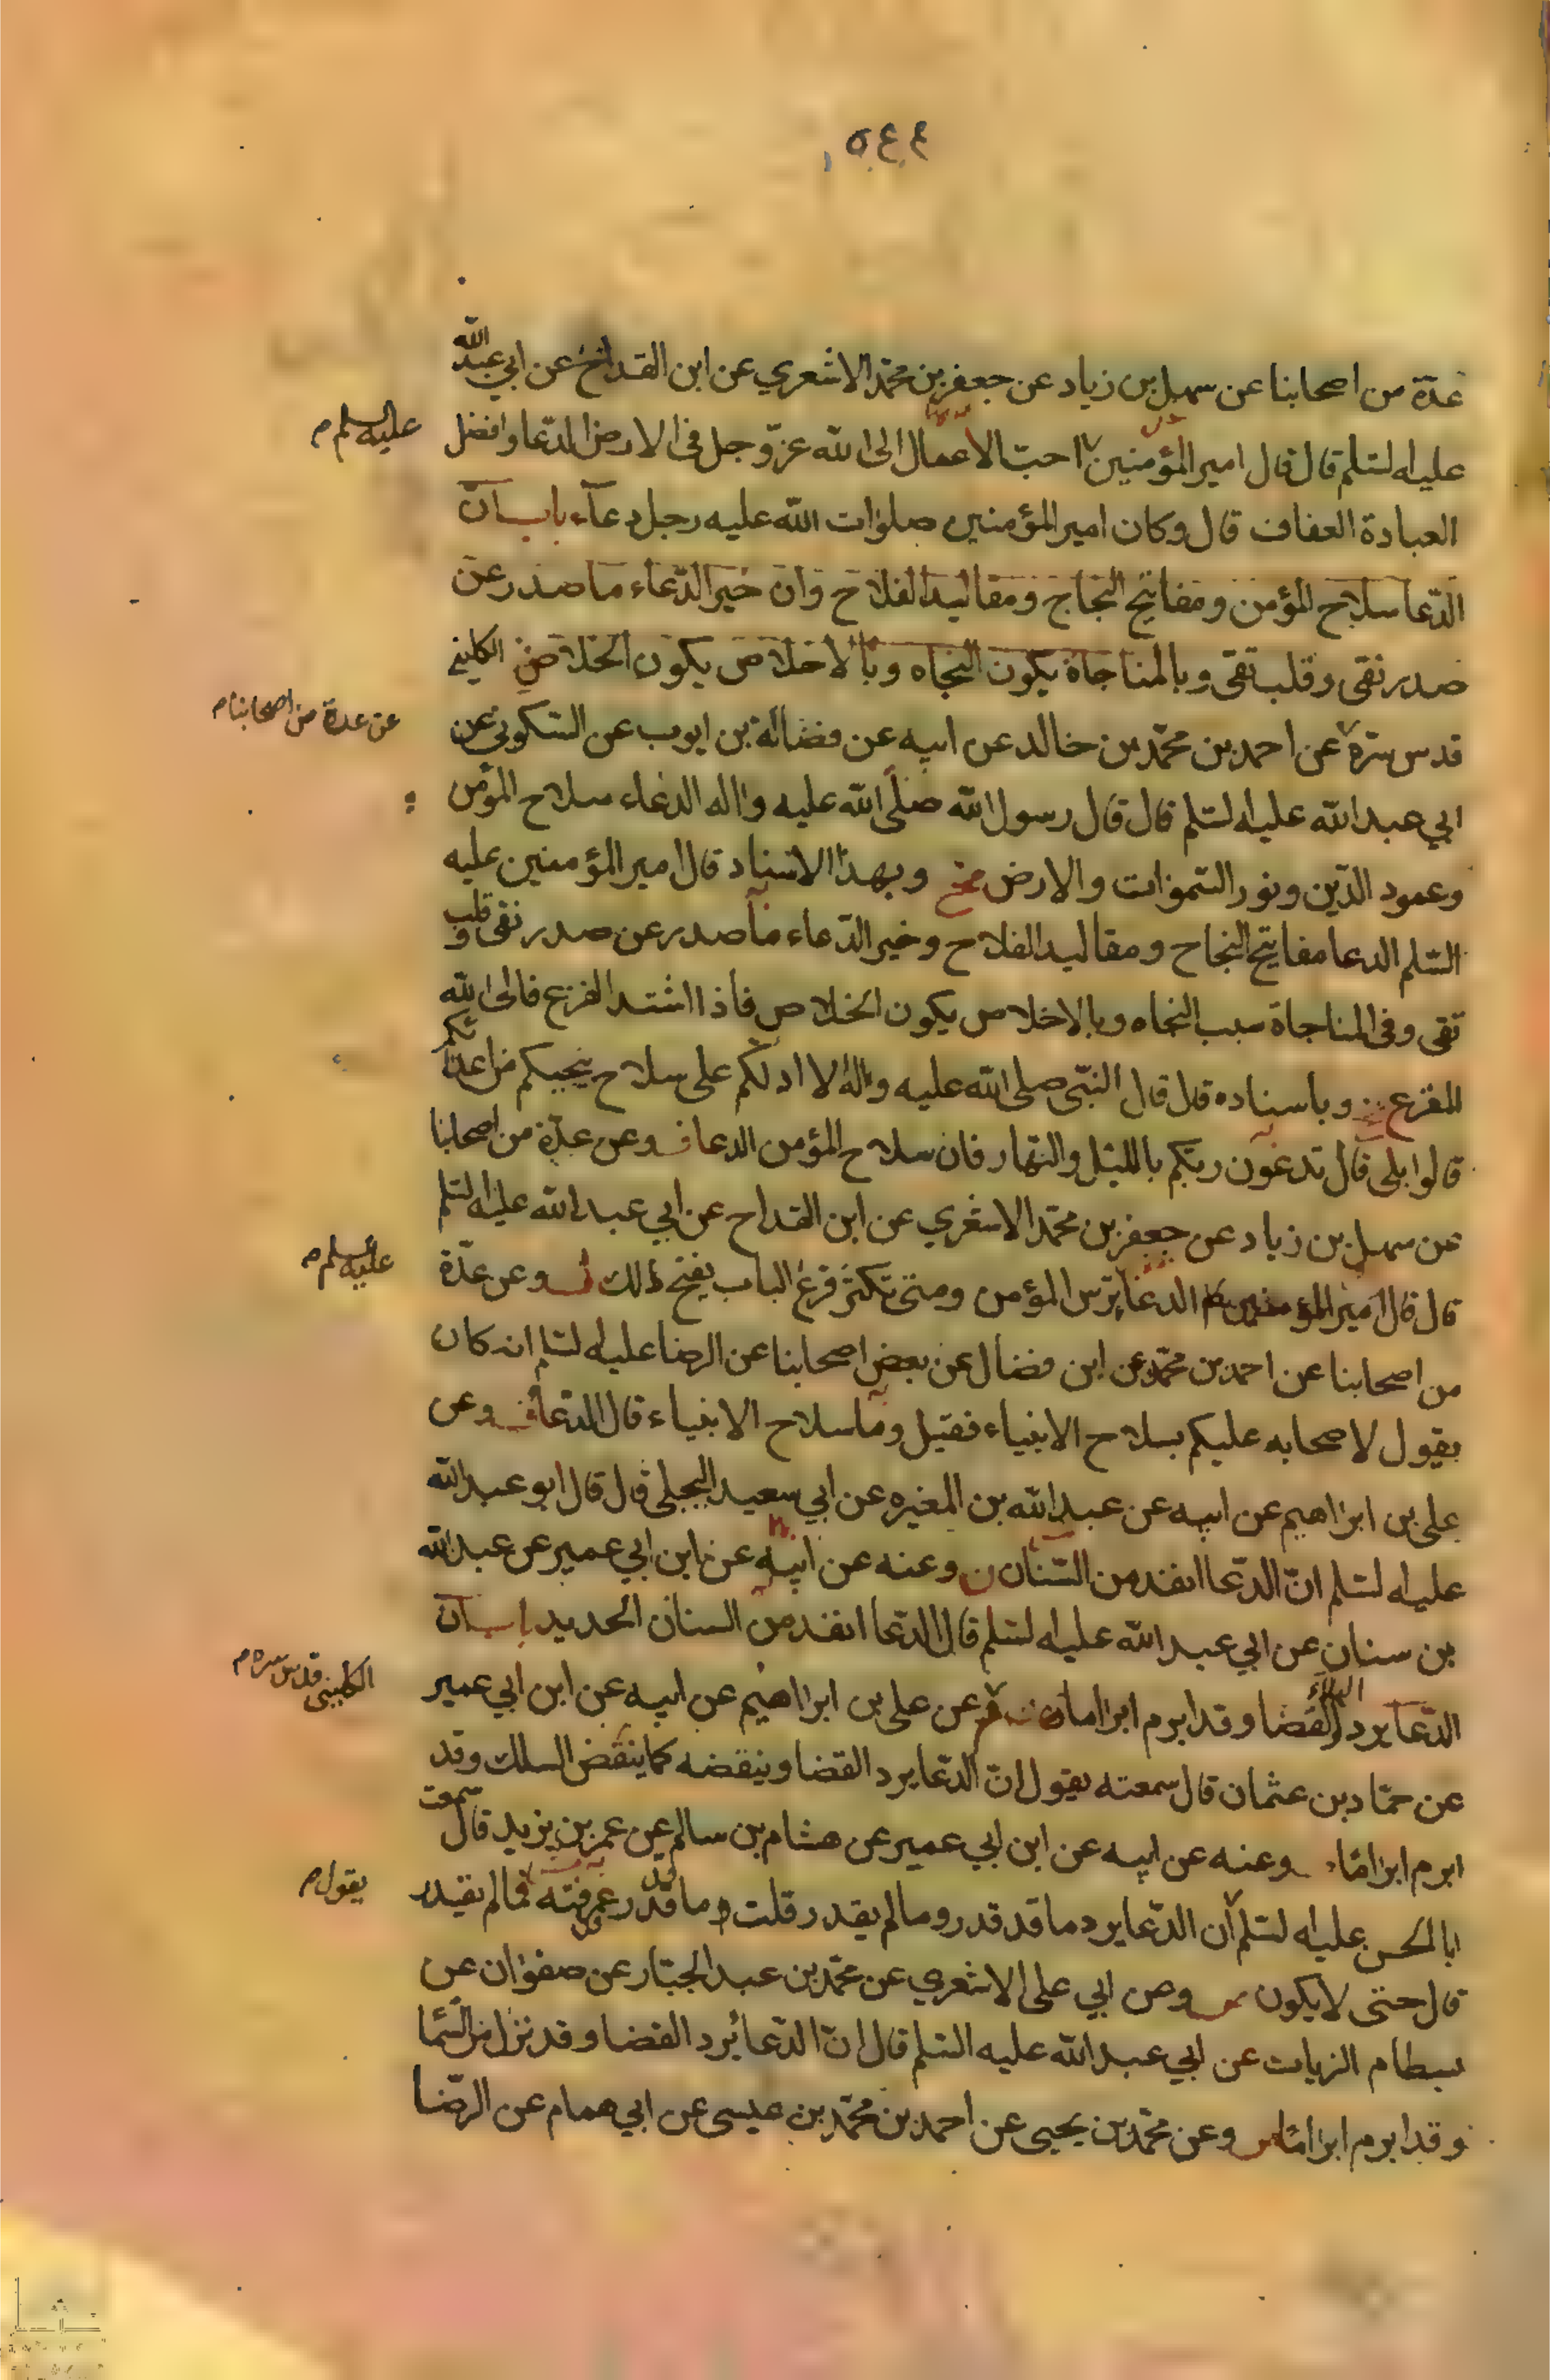 ٥٤٤
عدّة من اصحابنا عن سهل بن زياد عن جعفر بن محمّد الاشعري عن ابن القداح عن ابي عبد الله
عليه السّلم قال قال امير المؤمنين احبّ الاعمال الى الله عزّ وجل في الارض الدّعا وافضل
عليه السلم م
العبادة العفاف قال وكان امير المؤمنين صلوات الله عليه رجل دعآء باب انّ
الدّعا سلاح المؤمن ومفاتيح النجاح ومقاليد الفلاح وانّ خير الدّعاء ما صدر عن
صدر نقى وقلب تقى وبالمناجاة يكون النجاه وبالاخلاص يكون الخلاص الكليني
قدس سرّه عن احمد بن محمّد بن خالد عن ابيه عن فضالة بن ايوب عن السّكوني عن
عن عدة من اصحابنا م
ابي عبد الله عليه السّلم قال قال رسول الله صلّى الله عليه واله الدعاء سلاح المؤمن
وعمود الدّين ونور السّموات والارض وبهذا الاسناد قال امير المؤمنين عليه
السّلم الدعا مفاتيح النجاح ومقاليد الفلاح وخير الدّعاء ما صدر عن صدر نقى وقلب
تقى وفى المناجاة سبب النجاه وبالاخلاص يكون الخلاص فاذا اشتد الفزع فالى الله
المفزع وباسناده قال قال النبّى صلى الله عليه واله الا ادلكم على سلاح ينجيكم من اعدائكم
قالوا بلى قال تدعون ربكم بالليل والنهار فان سلاح المؤمن الدعا وعن عدّة من اصحابنا
عن سهل بن زياد عن جعفر بن محمّد الاشعري عن ابن القداح عن ابي عبد الله عليه السّلم
قال قال امير المؤمنين الدعا ترس المؤمن ومتى تكثر قرع الباب يفتح لك وعن عدّة
عليه السلم م
من اصحابنا عن احمد بن محمّد عن ابن فضال عن بعض اصحابنا عن الرضا عليه السّلم انه كان
يقول لاصحابه عليكم بسلاح الانبياء فقيل وما سلاح الانبياء قال الدّعا وعن
على بن ابراهيم عن ابيه عن عبد الله بن المغيره عن ابي سعيد البجلى قال قال ابو عبد الله
عليه السّلم انّ الدّعا انفذ من السّنان وعنه عن ابيه عن ابن ابي عمير عن عبد الله
بن سنان عن ابي عبد الله عليه السّلم قال الدّعا انفذ من السنان الحديد باب انّ
الدّعا يرد البلاء والقضا وقد ابرم ابراما عن على بن ابراهيم عن ابيه عن ابن ابي عمير
الكلينى قدس سره م
عن حمّاد بن عثمان قال سمعته يقول انّ الدّعا يرد القضا وينقضه كما ينقض السلك وقد
ابرم ابرامًا وعنه عن ابيه عن ابن ابي عمير عن هشام بن سالم عن عمر بن يزيد قال سمعت
ابا الحسن عليه السّلم ان الدّعا يرد ما قد قدر وما لم يقدر قلت وما قد قدر عرفته فما لم يقدر
يقول م
قال حتى لا يكون وعن ابي على الاشعري عن محمّد بن عبد الجبّار عن صفوان عن
بسطام الزيات عن ابي عبد الله عليه السّلم قال انّ الدّعا يرد القضا وقد نزل من السّما
وقد ابرم ابرامًا وعن محمّد بن يحيى عن احمد بن محمّد بن عيسى عن ابي همام عن الرضا